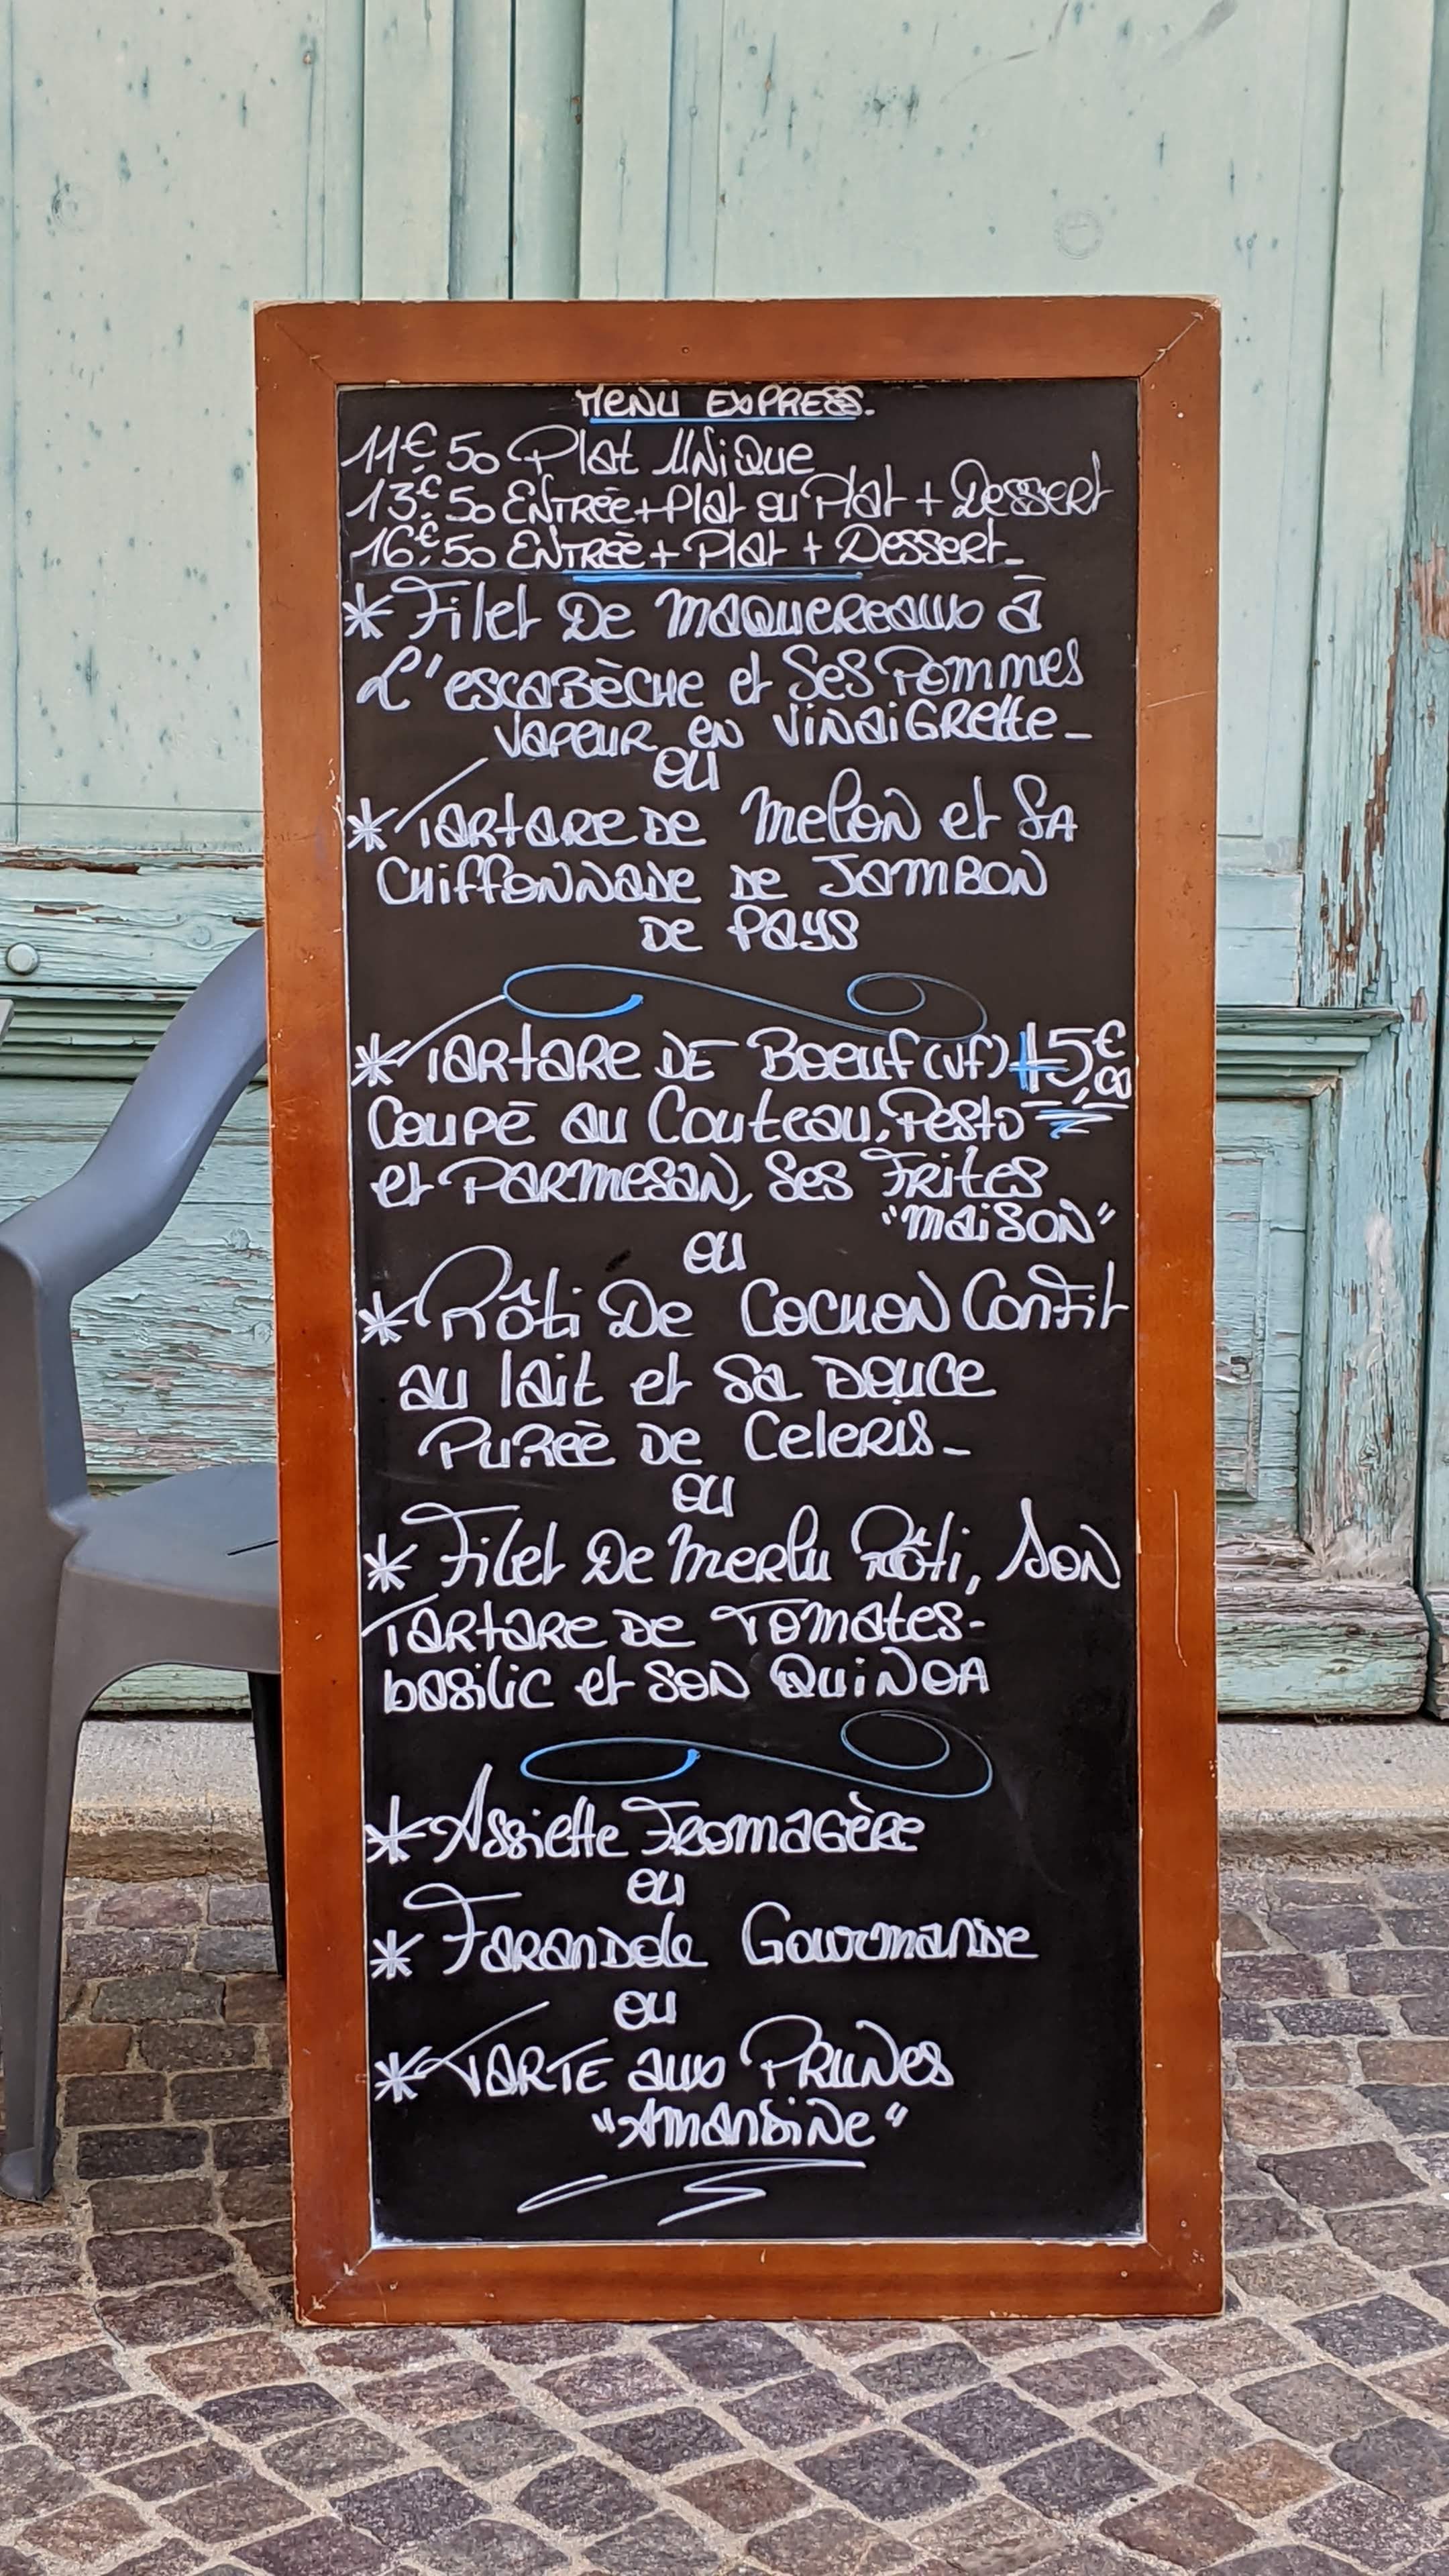 MENU EXPRESS.
11€,50 Plat Unique
13€,50 Entrée + Plat ou Plat + Dessert
16€,50 Entrée + Plat + Dessert_
* Filet De maquereaux à
L'escabèche et Ses Pommes
vapeur en vinaigrette_
ou
* Tartare de melon et Sa
Chiffonnade de Jambon
de Pays
* Tartare de Boeuf (VF) +5€,00
Coupé au Couteau, Pesto
et Parmesan, Ses Frites
"maison"
ou
* Rôti De Cochon Confit
au lait et Sa Douce
Purée de Celeris_
ou
* Filet De merlu Rôti, Son
Tartare de Tomates-
basilic et son Quinoa
* Assiette Fromagère
ou
* Farandole Gourmande
ou
* Tarte aux Prunes
"Amandine"